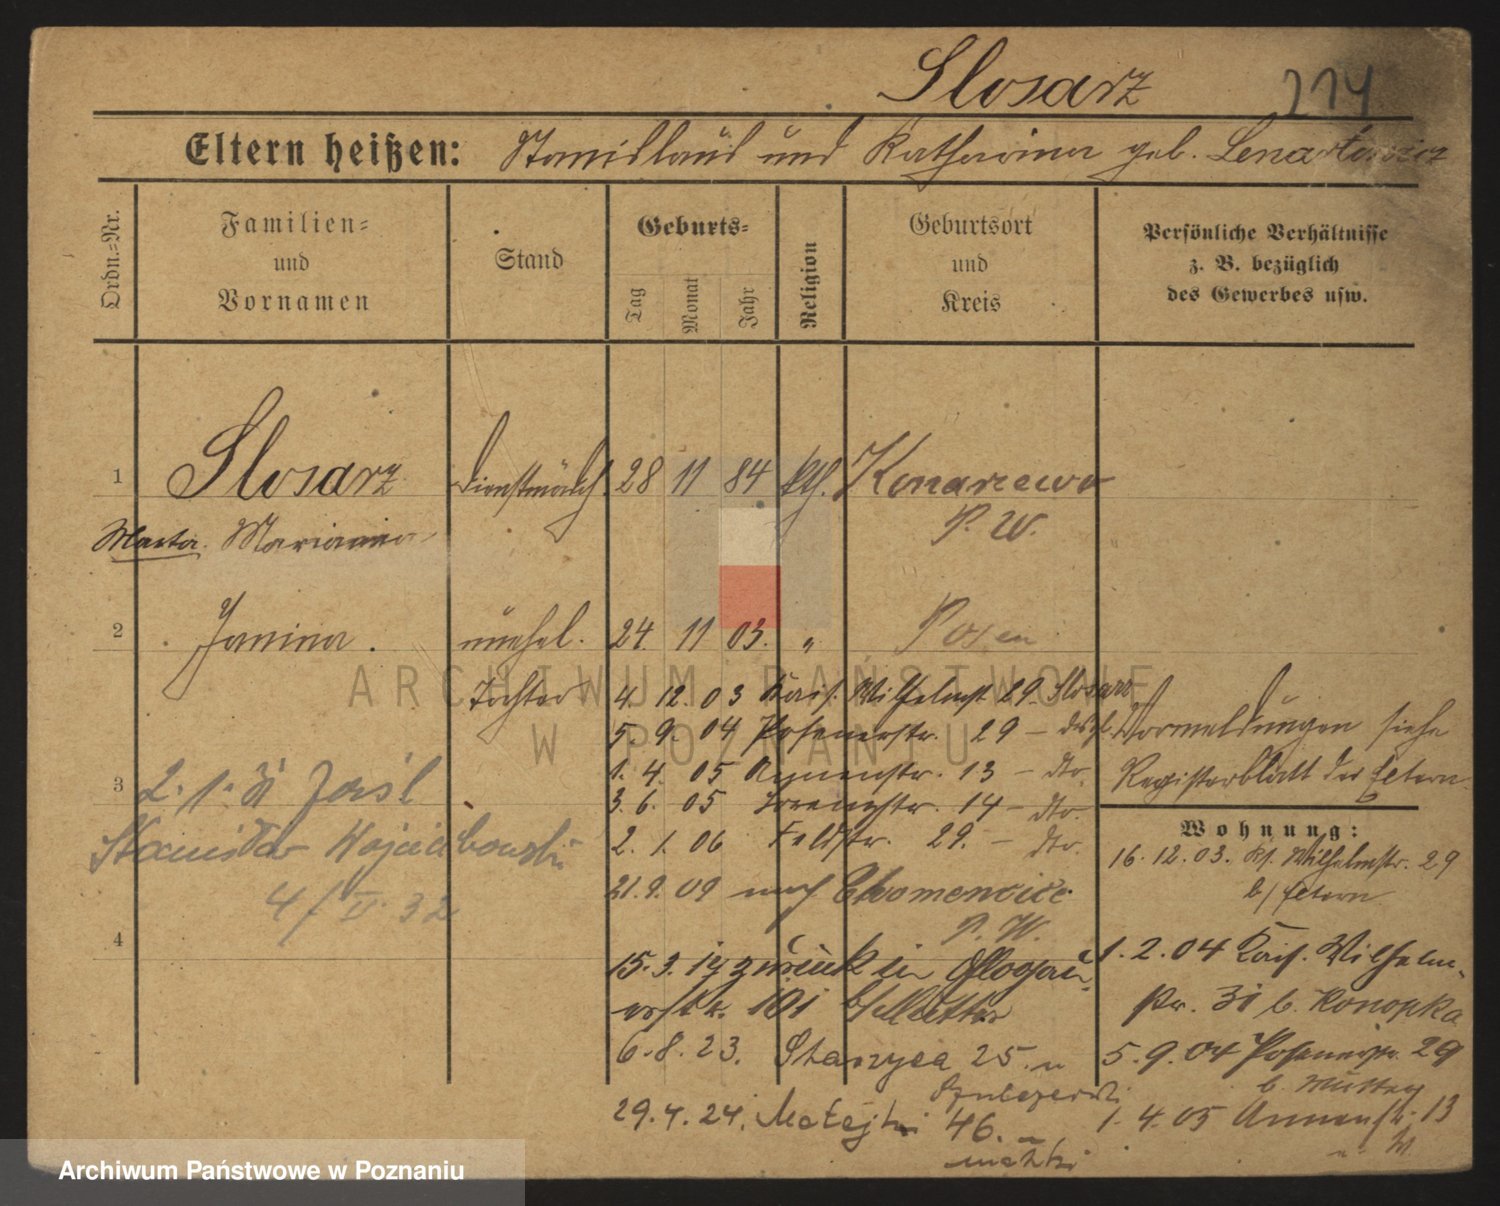 Slosarz 214
Eltern heißen: Stanislaus und Katharina geb. Lenartowicz
Ordn.=Nr.
Familien=
und
Vornamen
Stand
Geburts=
Tag
Monat
Jahr
Religion
Geburtsort
und
Kreis
Persönliche Verhältnisse
z. B. bezüglich
des Gewerbes usw.
1 Slosarz Dienstmädch. 28 11 84 kth. Konarzewo
Marta. Marianna P. W.
2 Janina. unehel. 24. 11 03. " Posen
Tochter 4. 12. 03 Kais. Wilhelmst 29. Slosarz
5. 9. 04 Posenerstr. 29 – desgl.
1. 4. 05 Annenstr. 13 – dto.
3. 6. 05 14 – dto.
2. 1. 06 Feldstr. 29. – dto.
21. 9. 09 nach P. W.
15. 3. 19 zurück in Glogau-
erstr. 101 b/Mutter
6. 8. 23. 25.
29. 4. 24. Matejki 46.
Vormeldungen siehe
Registerblatt der Eltern.
Wohnung:
16. 12. 03. Ks. Wilhelmstr. 29
b/ Eltern
1. 2. 04 Kais. Wilhelm-
str. 31 b. Konopka
5. 9. 04 Posenerstr. 29
b. Mutter
1. 4. 05 Annenstr. 13
3 2. 1.
Stanisław Wojciechowski
4/ II. 32
4
ARCHIWUM PAŃSTWOWE
W POZNANIU
Archiwum Państwowe w Poznaniu